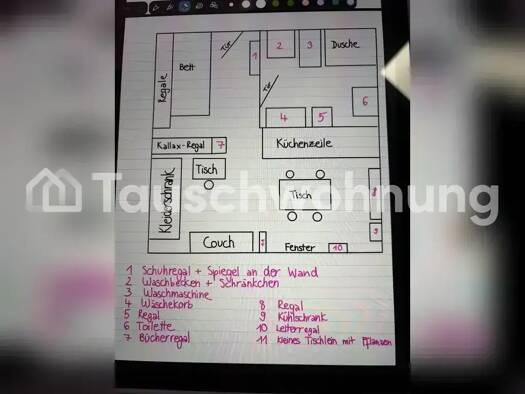 Regale
Bett
Tür
1
2
3
Dusche
Tür
6
4
5
Kallax-Regal
7
Küchenzeile
Kleiderschrank
Tisch
Tisch
8
9
Couch
Fenster
10
Tauschwohnung
1 Schuhregal + Spiegel an der Wand
2 Waschbecken + Schränkchen
3 Waschmaschine
4 Wäschekorb
5 Regal
6 Toilette
7 Bücherregal
8 Regal
9 Kühlschrank
10 Leiterregal
11 kleines Tischlein mit Pflanzen